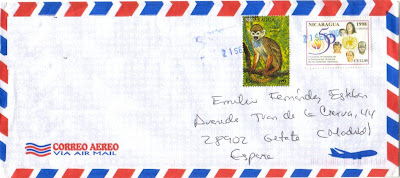 NICARAGUA
NICARAGUA 1998
50
C$12.00
21 SE
Emilio Fernández Esteban
Avenida Juan de la Cierva, 44
28902 Getafe (Madrid)
España
CORREO AEREO
VIA AIR MAIL